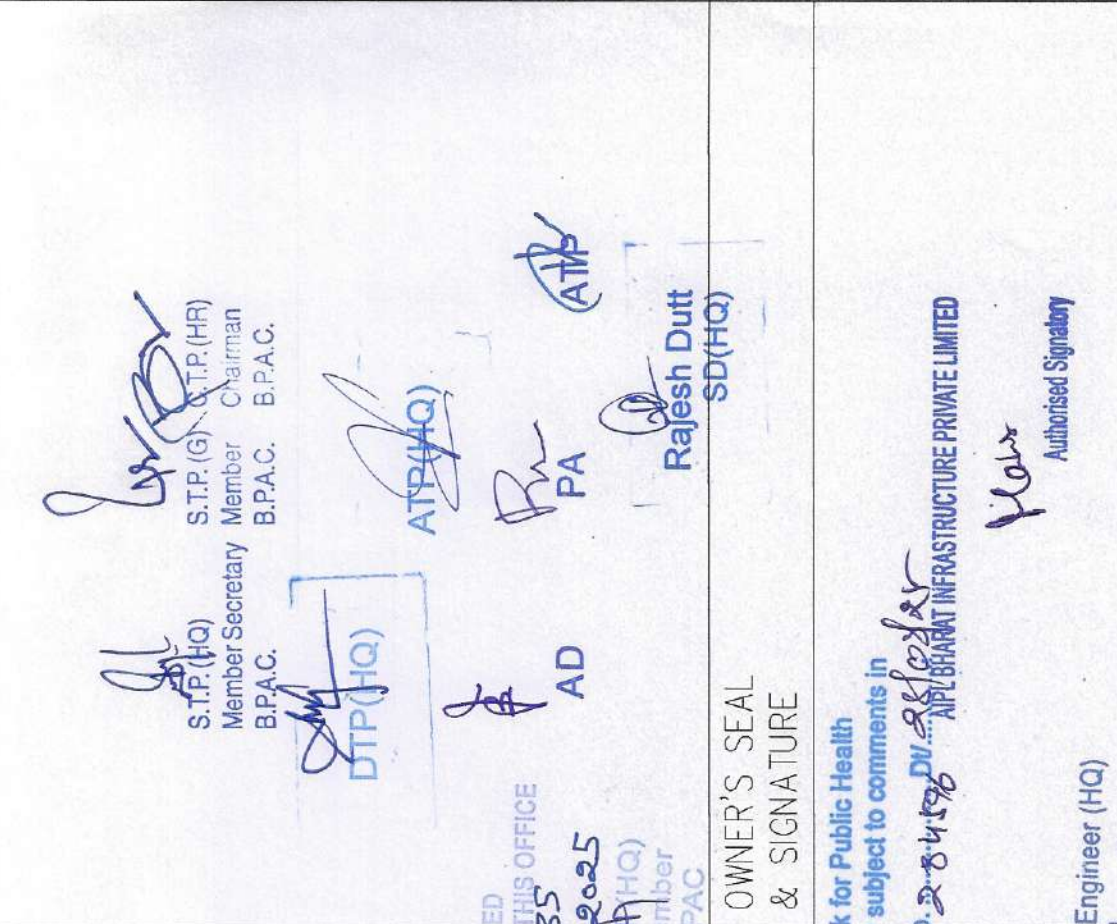 S.T.P. (HQ)
Member Secretary
B.P.A.C.
S.T.P. (G)
Member
B.P.A.C.
C.T.P. (HR)
Chairman
B.P.A.C.
DTP(HQ)
ATP(HQ)
AD
PA
(ATP)
Rajesh Dutt
SD(HQ)
ED
THIS OFFICE
35
2025
(HQ)
mber
PAC
OWNER'S SEAL
& SIGNATURE
k for Public Health
subject to comments in
284596 Dt/....
AIPL BHARAT INFRASTRUCTURE PRIVATE LIMITED
Authorised Signatory
Engineer (HQ)